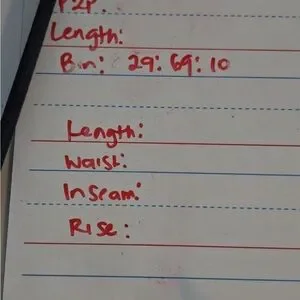 P2P:
Length:
Bin: 29:69:10
Length:
Waist:
Inseam:
Rise: